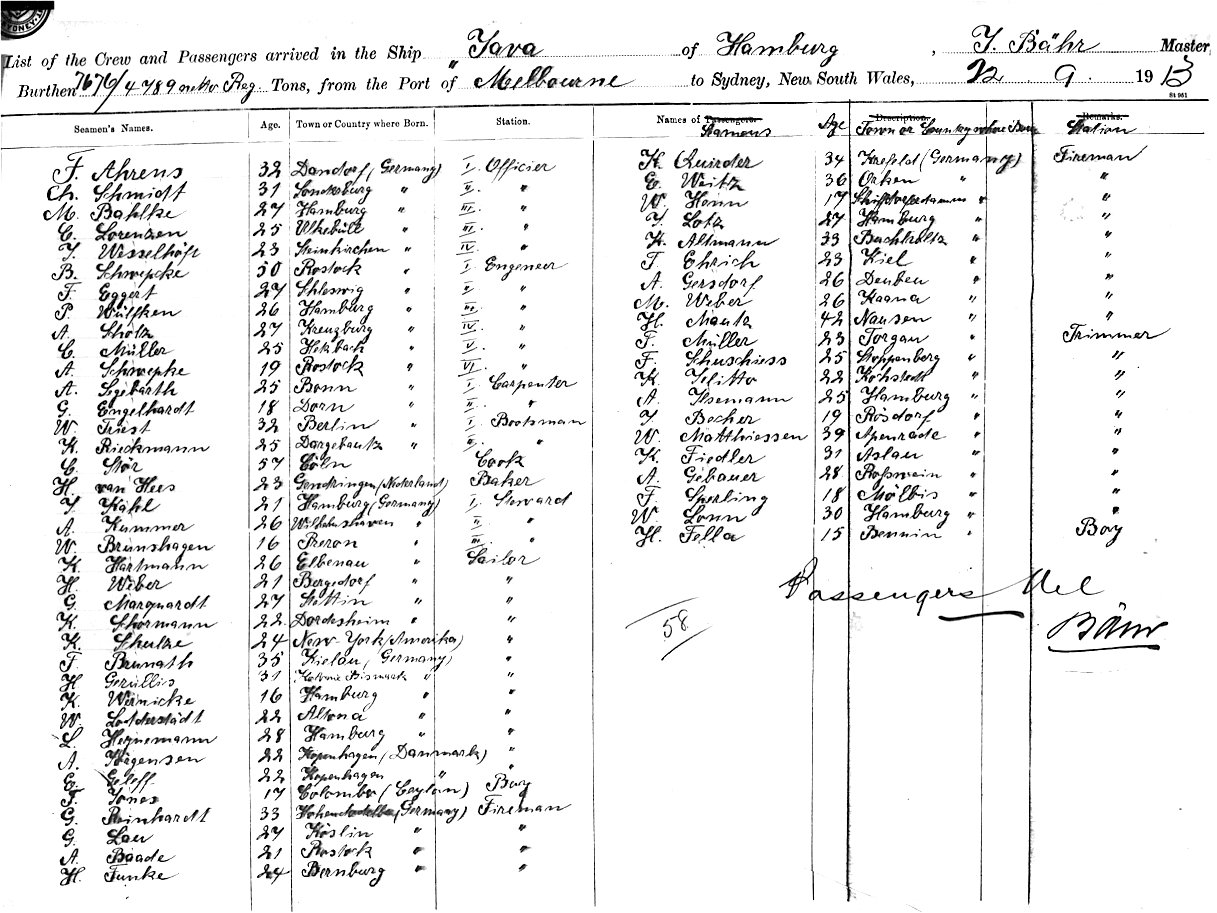 SYDNEY
List of the Crew and Passengers arrived in the Ship „Java of Hamburg, J. Bähr Master,
Burthen 7676/4789 netto Reg. Tons, from the Port of Melbourne to Sydney, New South Wales, 12 9. 1913
St 961
Seamen's Names. Age. Town or Country where Born. Station.
F. Ahrens 32 Dandorf (Germany) I. Officier
Ch. Schmidt 31 Sonderburg " II. "
M. Bahlke 27 Hamburg " III. "
C. Lorenzen 25 Ulkebüll " III. "
J. Wesselhöft 23 Steinkirchen " IV. "
B. Schwepcke 50 Rostock " I Engeneer
F. Eggert 27 Schleswig " II. "
P. Wülfken 26 Hamburg " III. "
A. Scholz 27 Kreuzburg " IV. "
C. Müller 25 Hetzbach " V. "
A. Schwepke 19 Rostock " VI. "
A. Segebarth 25 Bonn " I. Carpenter
G. Engelhardt 18 Dorn " II. "
W. Triest 32 Berlin " I. Bootsman
K. Rieckmann 25 Dargebautz " II. "
C. Stör 57 Cöln Cook
H. van Hees 23 Gendringen (Nederland) Baker
J. Kahl 21 Hamburg (Germany) I. Steward
A. Kummer 26 Wilhelmshaven " II. "
W. Brunshagen 16 Preron " III. "
K. Hartmann 26 Elbenau " Sailor
H. Weber 21 Bergedorf " "
G. Marquardt 27 Stettin " "
K. Schormann 22 Dordesheim " "
K. Schulze 24 New York (Amerika) "
F. Brunath 35 Kielau (Germany) "
H. Gerullis 31 Kolonie Bismarck " "
K. Wernicke 16 Hamburg " "
W. Lodderstädt 22 Altona " "
L. Heynemann 28 Hamburg " "
A. Jörgensen 22 Kopenhagen (Danmark) "
E. Geleff 22 Kopenhagen " "
F. Jones 17 Colombo (Ceylon) Boy
G. Reinhardt 33 (Germany) Fireman
G. Lau 27 Köslin " "
A. Baade 21 Rostock " "
H. Funke 24 Bernburg " "
Names of Passengers. Description. Remarks.
Seamens Age Town or Country where Born Station
K. Quirder 34 Krefeld (Germany) Fireman
E. Weitz 36 Orken " "
W. Henn 17 " "
J. Lotz 27 Hamburg " "
K. Altmann 33 Buchholtz " "
F. Ehrich 23 Kiel " "
A. Gersdorf 26 Deuben " "
M. Weber 26 Kaana " "
H. Mautz 42 Nausen " "
F. Müller 23 Torgau " Trimmer
F. Schuschiess 25 Stoppenberg " "
K. Jelitto 22 Kohstedt " "
A. Ilsemann 25 Hamburg " "
J. Becher 19 Rösdorf " "
W. Matthiessen 39 Apenrade " "
K. Fiedler 31 Aslau " "
A. Gebauer 28 Roßwein " "
F. Sperling 18 Mölbis " "
W. Lonn 30 Hamburg " "
H. Fella 15 Bennin " Boy
Passengers Nil
58
Bähr